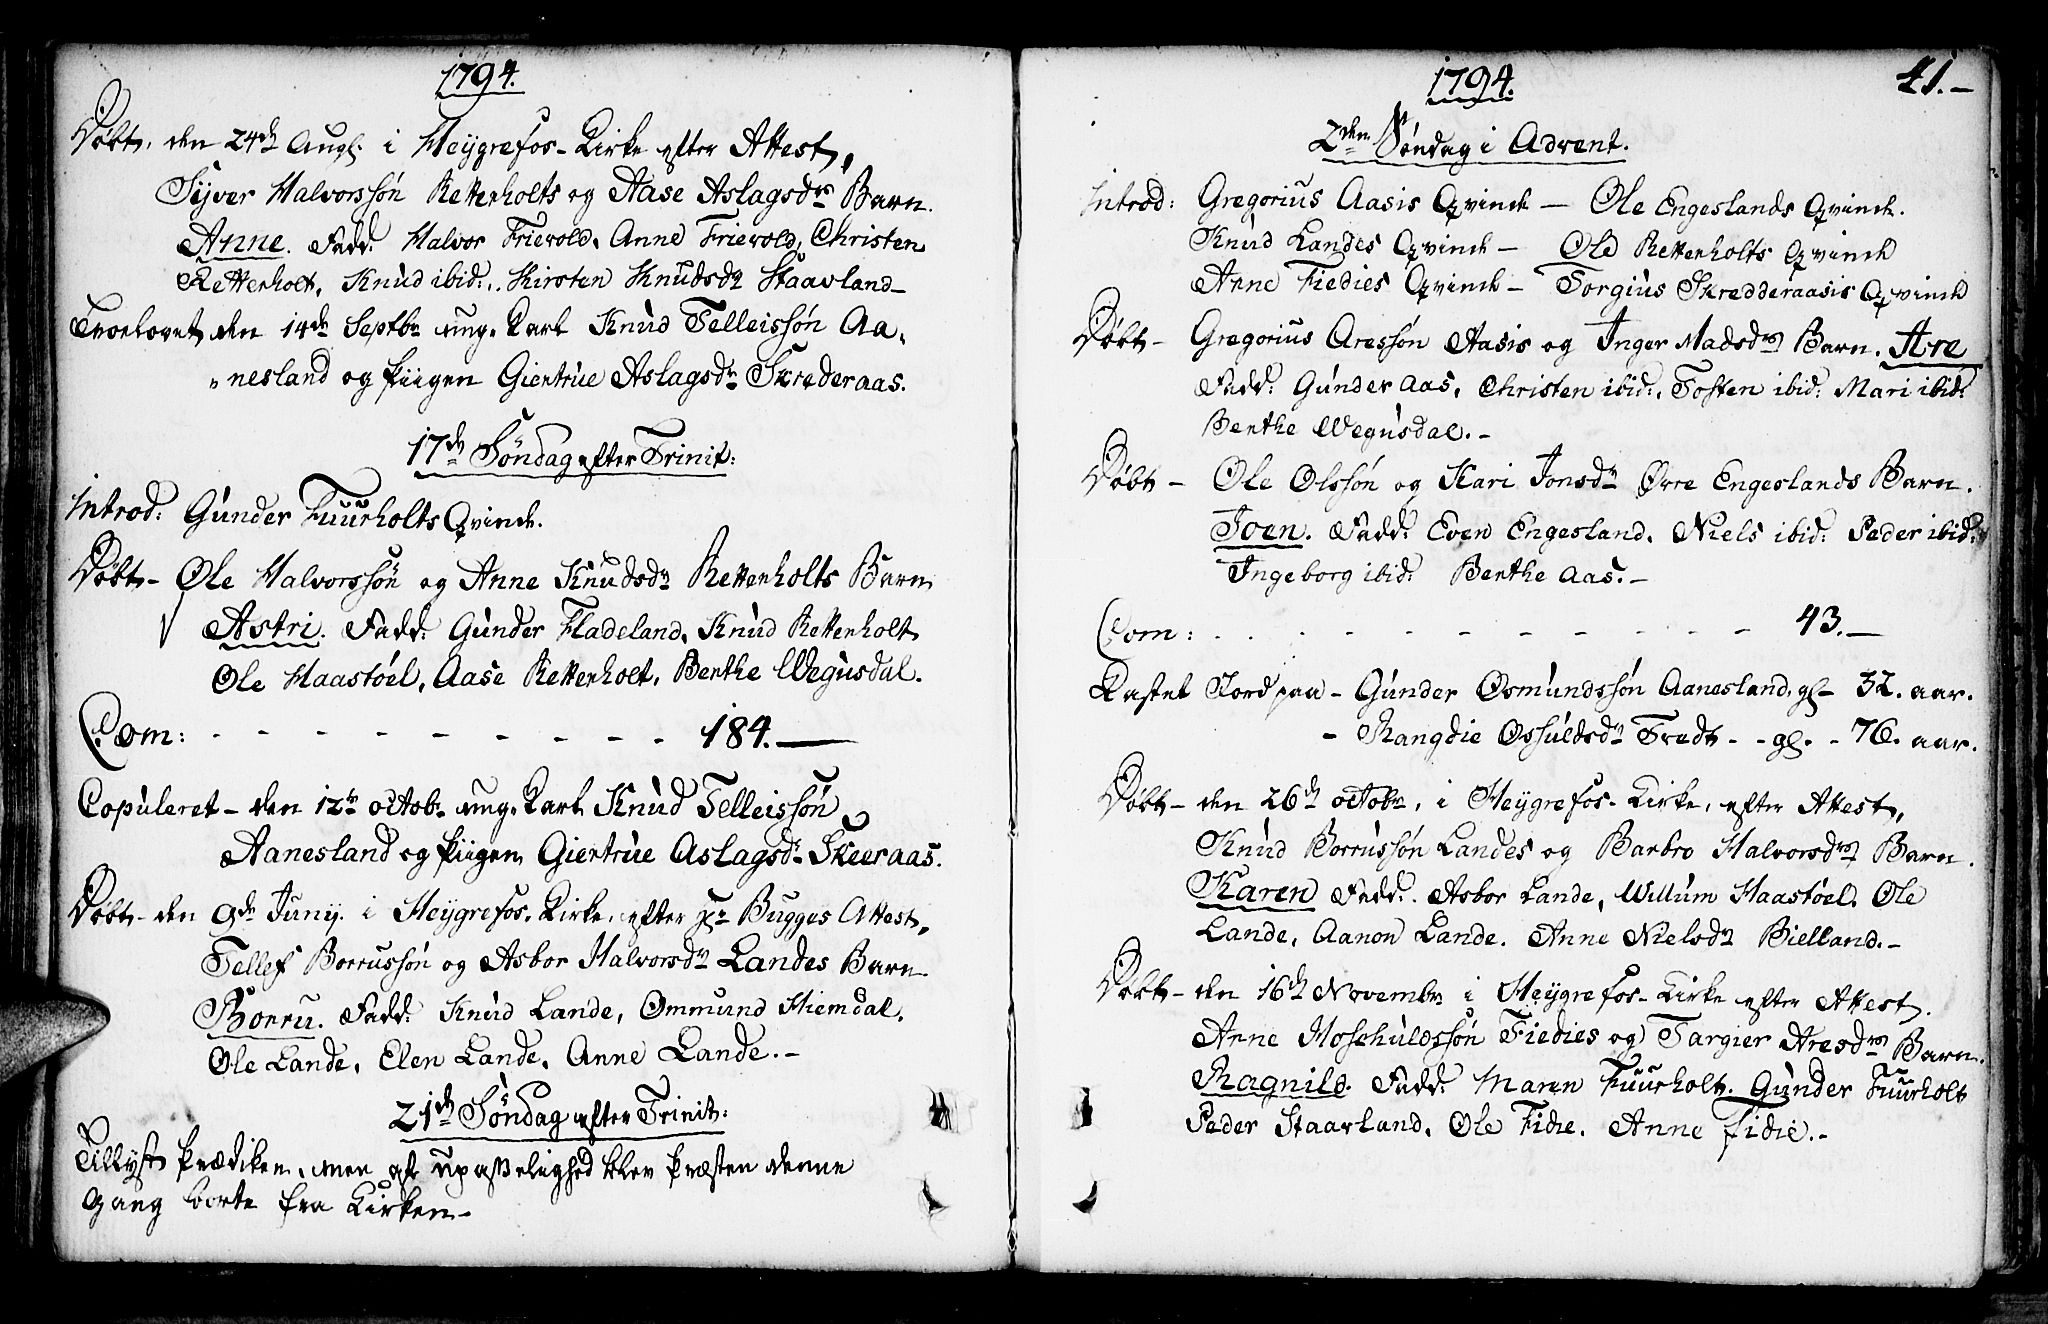 1794.
Döbt, den 24de Augs. i Heÿgrefos-Kirke efter Attest,
Syver Halvorssön Rettenholts og Aase Aslagsdrs Barn.
Anne. Fadd: Halvor Frievold, Anne Frievold, Christen
Rettenholt, Knud ibid:, Kirsten Knudsdr Staavland-
Troelovet den 14de Septbr ung. Karl Knud Telleissön Aa,
„nesland og Piigen Giertrue Aslagsdr Skrederaas.
17de Söndag efter Trinit:
Introd: Gunder Tuurholts Qvinde.
Döbt- Ole Halvorssön og Anne Knudsdr Rettenholts Barn
Astri. Fadd: Gunder Fladeland, Knud Rettenholt
Ole Haastöel, Aase Rettenholt, Berthe Wegusdal.
Com: - - - - - - - - - - 184.-
Copuleret- den 12te octobr ung. Karl Knud Telleissön
Aanesland og Piigen Giertrue Aslagsdr Skeeraas.
Döbt- den 9de Junij. i Heÿgrefos-Kirke, efter Hr Bugges Attest,
Tellef Borrussön og Asbor Halvorsdr Landes Barn
Borru. Fadd: Knud Lande, Ommund Hiemdal,
Ole Lande, Elen Lande, Anne Lande.-
21de Söndag efter Trinit:
Tillyst Prædiken, men af Upasselighed blev Præsten denne
Gang borte fra Kirken-
1794.
41.-
2den Söndag i Advent.
Introd: Gregorius Aasis Qvinde - Ole Engeslands Qvinde.
Knud Landes Qvinde - Ole Rettenholts Qvinde
Anne Fiedies Qvinde - Torgius Skredderaasis Qvinde
Döbt- Gregorius Aressön Aasis og Inger Madsdrs Barn. Are
Fadd: Gunder Aas, Christen ibid:, Tosten ibid: Mari ibid:
Berthe Wegusdal.-
Döbt- Ole Olssön og Kari Jonsdr Örre Engeslands Barn.
Joen. Fadd: Even Engesland, Niels ibid: Peder ibid:
Ingeborg ibid: Berthe Aas.-
Com: - - - - - - - - - - 43.-
Kastet Jord paa- Gunder Osmundssön Aanesland, gl- 32. aar.
- Rangdie Osfuldsdr Tredt - - gl. - 76. aar.
Döbt- den 26de octobr, i Heÿgrefos-Kirke, efter Attest,
Knud Borrussön Landes og Barbro Halvorsdrs Barn.
Karen Fadd: Asbor Lande, Willum Haastöel, Ole
Lande, Aanon Lande, Anne Nielsdr Bielland.-
Döbt- den 16de Novembr i Heÿgrefos-Kirke efter Attest.
Anne Hoskuldssön Fiedies og Targier Aresdrs Barn.
Ragnild. Fadd: Maren Tuurholt, Gunder Tuurholt
Peder Staavland, Ole Fidie, Anne Fidie.-